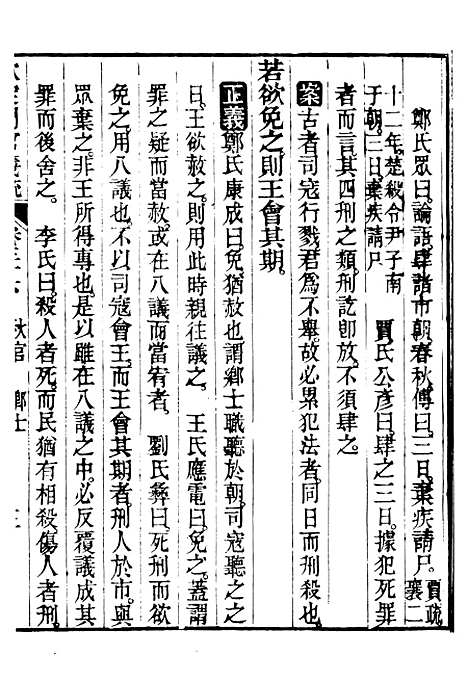 鄭氏眾曰論語肆諸市朝春秋傳曰三日棄疾請尸賈疏襄二
十二年楚殺令尹子南
于朝三日棄疾請尸　賈氏公彥曰肆之三日據犯死罪
者而言其四刑之類刑訖卽放不須肆之
案古者司寇行戮君爲不舉故必累犯法者同日而刑殺也
若欲免之則王會其期
正義鄭氏康成曰免猶赦也謂鄕士職聽於朝司寇聽之之
日王欲赦之則用此時親往議之　王氏應電曰免之葢謂
罪之疑而當赦或在八議而當宥者　劉氏彝曰死刑而欲
免之用八議也不以司寇會王而王會其期者刑人於市與
眾棄之非王所得專也是以雖在八議之中必反覆議成其
罪而後舍之　李氏曰殺人者死而民猶有相殺傷人者刑
欽定周官義疏　卷三十六　秋官　鄕士　三